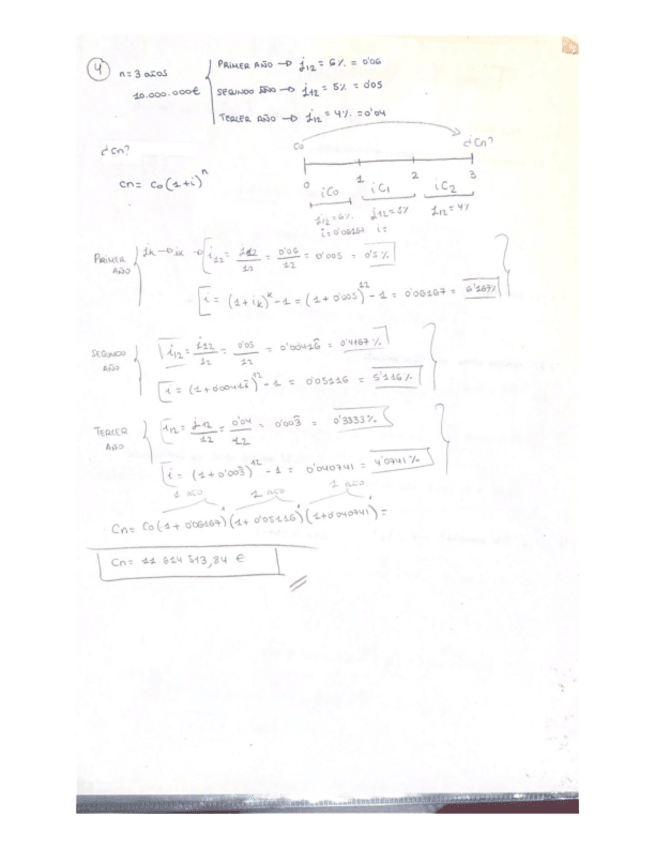 4
n = 3 años
10.000.000€
PRIMER AÑO → j12 = 6% = 0'06
SEGUNDO AÑO → j12 = 5% = 0'05
TERCER AÑO → j12 = 4% = 0'04
¿Cn?
Cn = Co(1+i)^n
Co ¿Cn?
0 1 2 3
iC0 iC1 iC2
j12 = 6% j12 = 5% j12 = 4%
i = 0'06167 i =
PRIMER AÑO
jk → ik → i12 = j12/12 = 0'06/12 = 0'005 = 0'5%
i = (1+ik)^k - 1 = (1+0'005)^12 - 1 = 0'06167 = 6'167%
SEGUNDO AÑO
i12 = j12/12 = 0'05/12 = 0'00416̂ = 0'4167%
i = (1+0'00416̂)^12 - 1 = 0'05116 = 5'116%
TERCER AÑO
i12 = j12/12 = 0'04/12 = 0'003̂ = 0'3333%
i = (1+0'003̂)^12 - 1 = 0'040741 = 4'0741%
1 AÑO 1 AÑO 1 AÑO
Cn = Co(1+0'06167)^1 (1+0'05116)^1 (1+0'040741)^1 =
Cn = 11 614 513,84 €